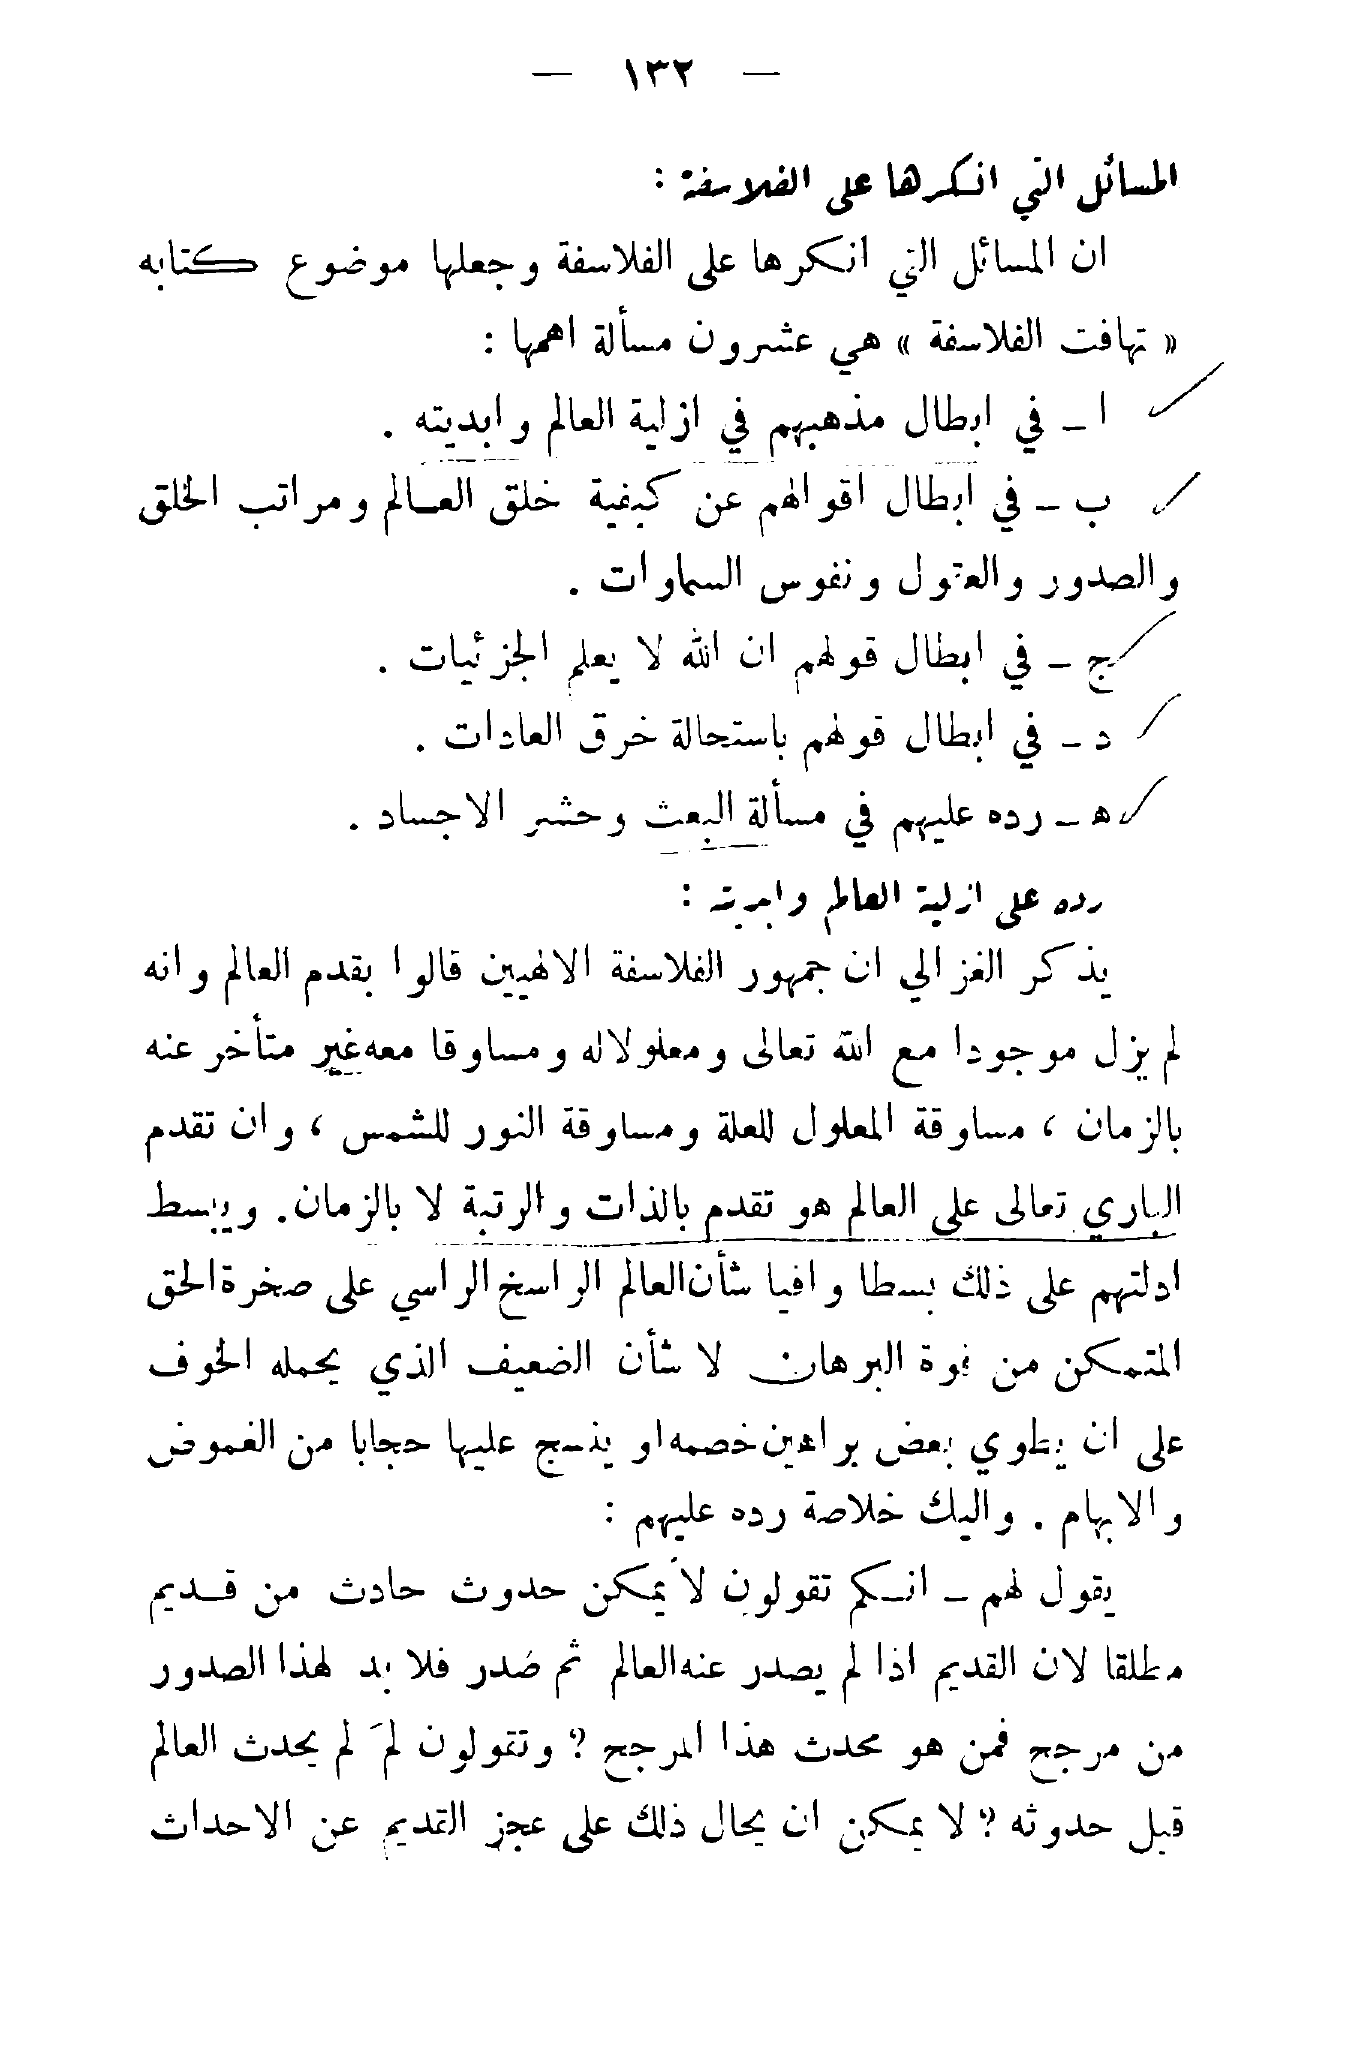 — ١٣٢ —
المسائل التي انكرها على الفلاسفة :
ان المسائل التي انكرها على الفلاسفة وجعلها موضوع كتابه
« تهافت الفلاسفة » هي عشرون مسألة اهمها :
ا ـ في ابطال مذهبهم في ازلية العالم وابديته .
ب ـ في ابطال اقوالهم عن كيفية خلق العالم ومراتب الخلق
والصدور والعقول ونفوس السماوات .
ج ـ في ابطال قولهم ان الله لا يعلم الجزئيات .
د ـ في ابطال قولهم باستحالة خرق العادات .
ه ـ رده عليهم في مسألة البعث وحشر الاجساد .
رده على ازلية العالم وابديته :
يذكر الغزالي ان جمهور الفلاسفة الالهيين قالوا بقدم العالم وانه
لم يزل موجودا مع الله تعالى ومعلولاله ومساوقا معه غير متأخر عنه
بالزمان ، مساوقة المعلول للعلة ومساوقة النور للشمس ، وان تقدم
الباري تعالى على العالم هو تقدم بالذات والرتبة لا بالزمان. ويبسط
ادلتهم على ذلك بسطا وافيا شأن العالم الراسخ الراسي على صخرة الحق
المتمكن من قوة البرهان لا شأن الضعيف الذي يحمله الخوف
على ان يطوي بعض براهين خصمه او ينسج عليها حجابا من الغموض
والابهام . واليك خلاصة رده عليهم :
يقول لهم ـ انكم تقولون لا يمكن حدوث حادث من قديم
مطلقا لان القديم اذا لم يصدر عنه العالم ثم صدر فلا بد لهذا الصدور
من مرجح فمن هو محدث هذا المرجح ؟ وتقولون لمَ لم يحدث العالم
قبل حدوثه ؟ لا يمكن ان يحال ذلك على عجز القديم عن الاحداث